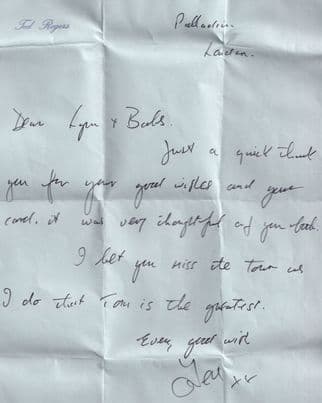 Ted Rogers
Palladium
London.
Dear Lynn + Babs.
Just a quick thank
you for your good wishes and your
card. it was very thoughtful of you both.
I bet you miss the Town as
I do that Tom is the greatest.
Every good wish
Ted xx